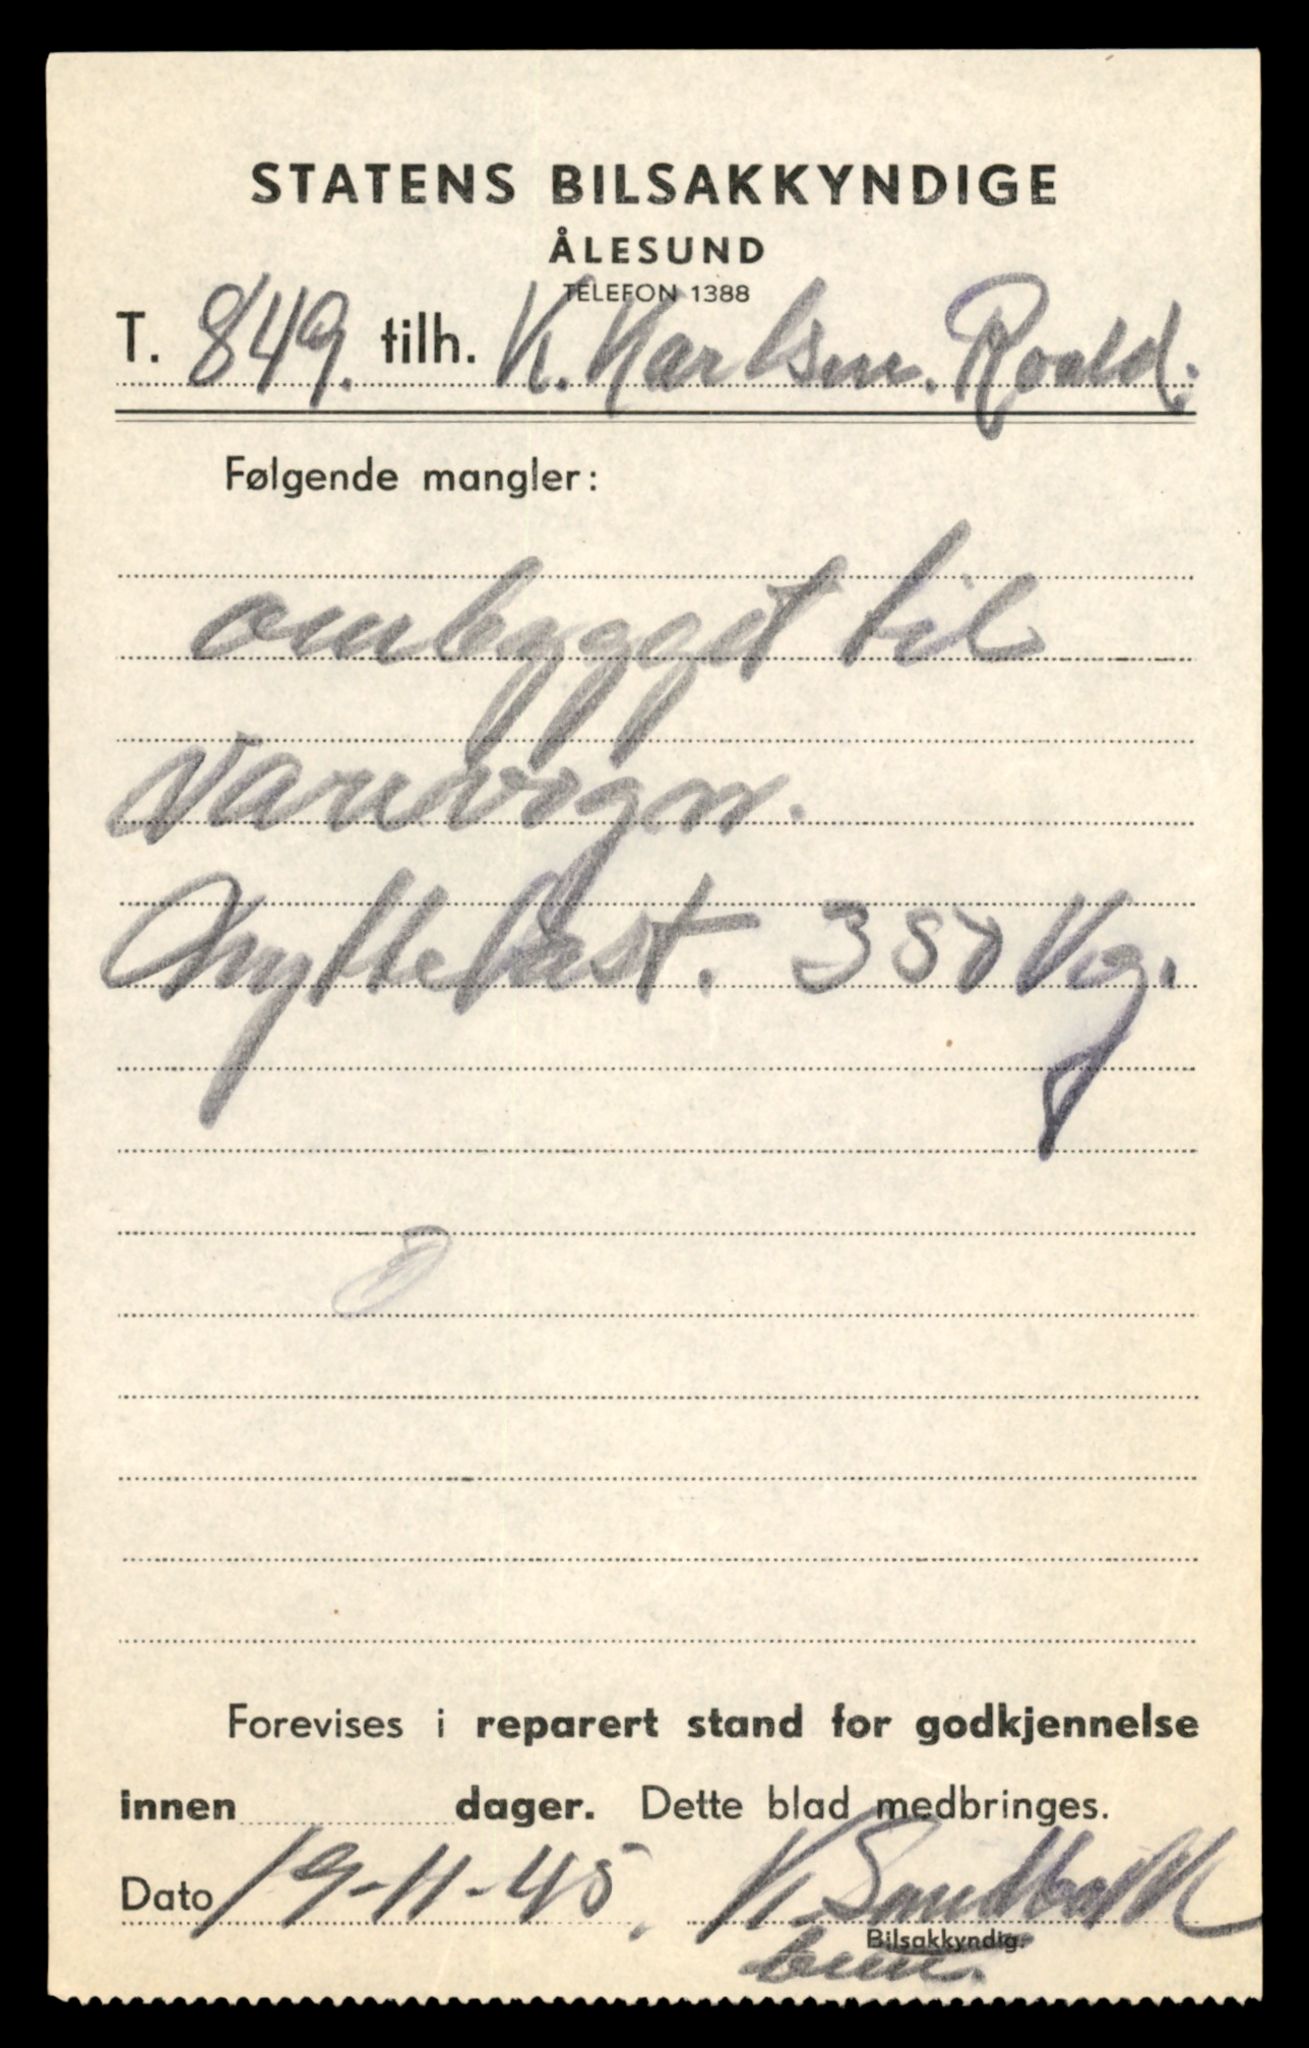 STATENS BILSAKKYNDIGE
ÅLESUND
TELEFON 1388
T. 849. tilh. K. Karlsen. Roald.
Følgende mangler:
ombygget til
Varevogn.
Nyttelast. 350 Kg.
Forevises i reparert stand for godkjennelse
innen dager. Dette blad medbringes.
Dato 19-11-45. K. Sandbakk
Bilsakkyndig.